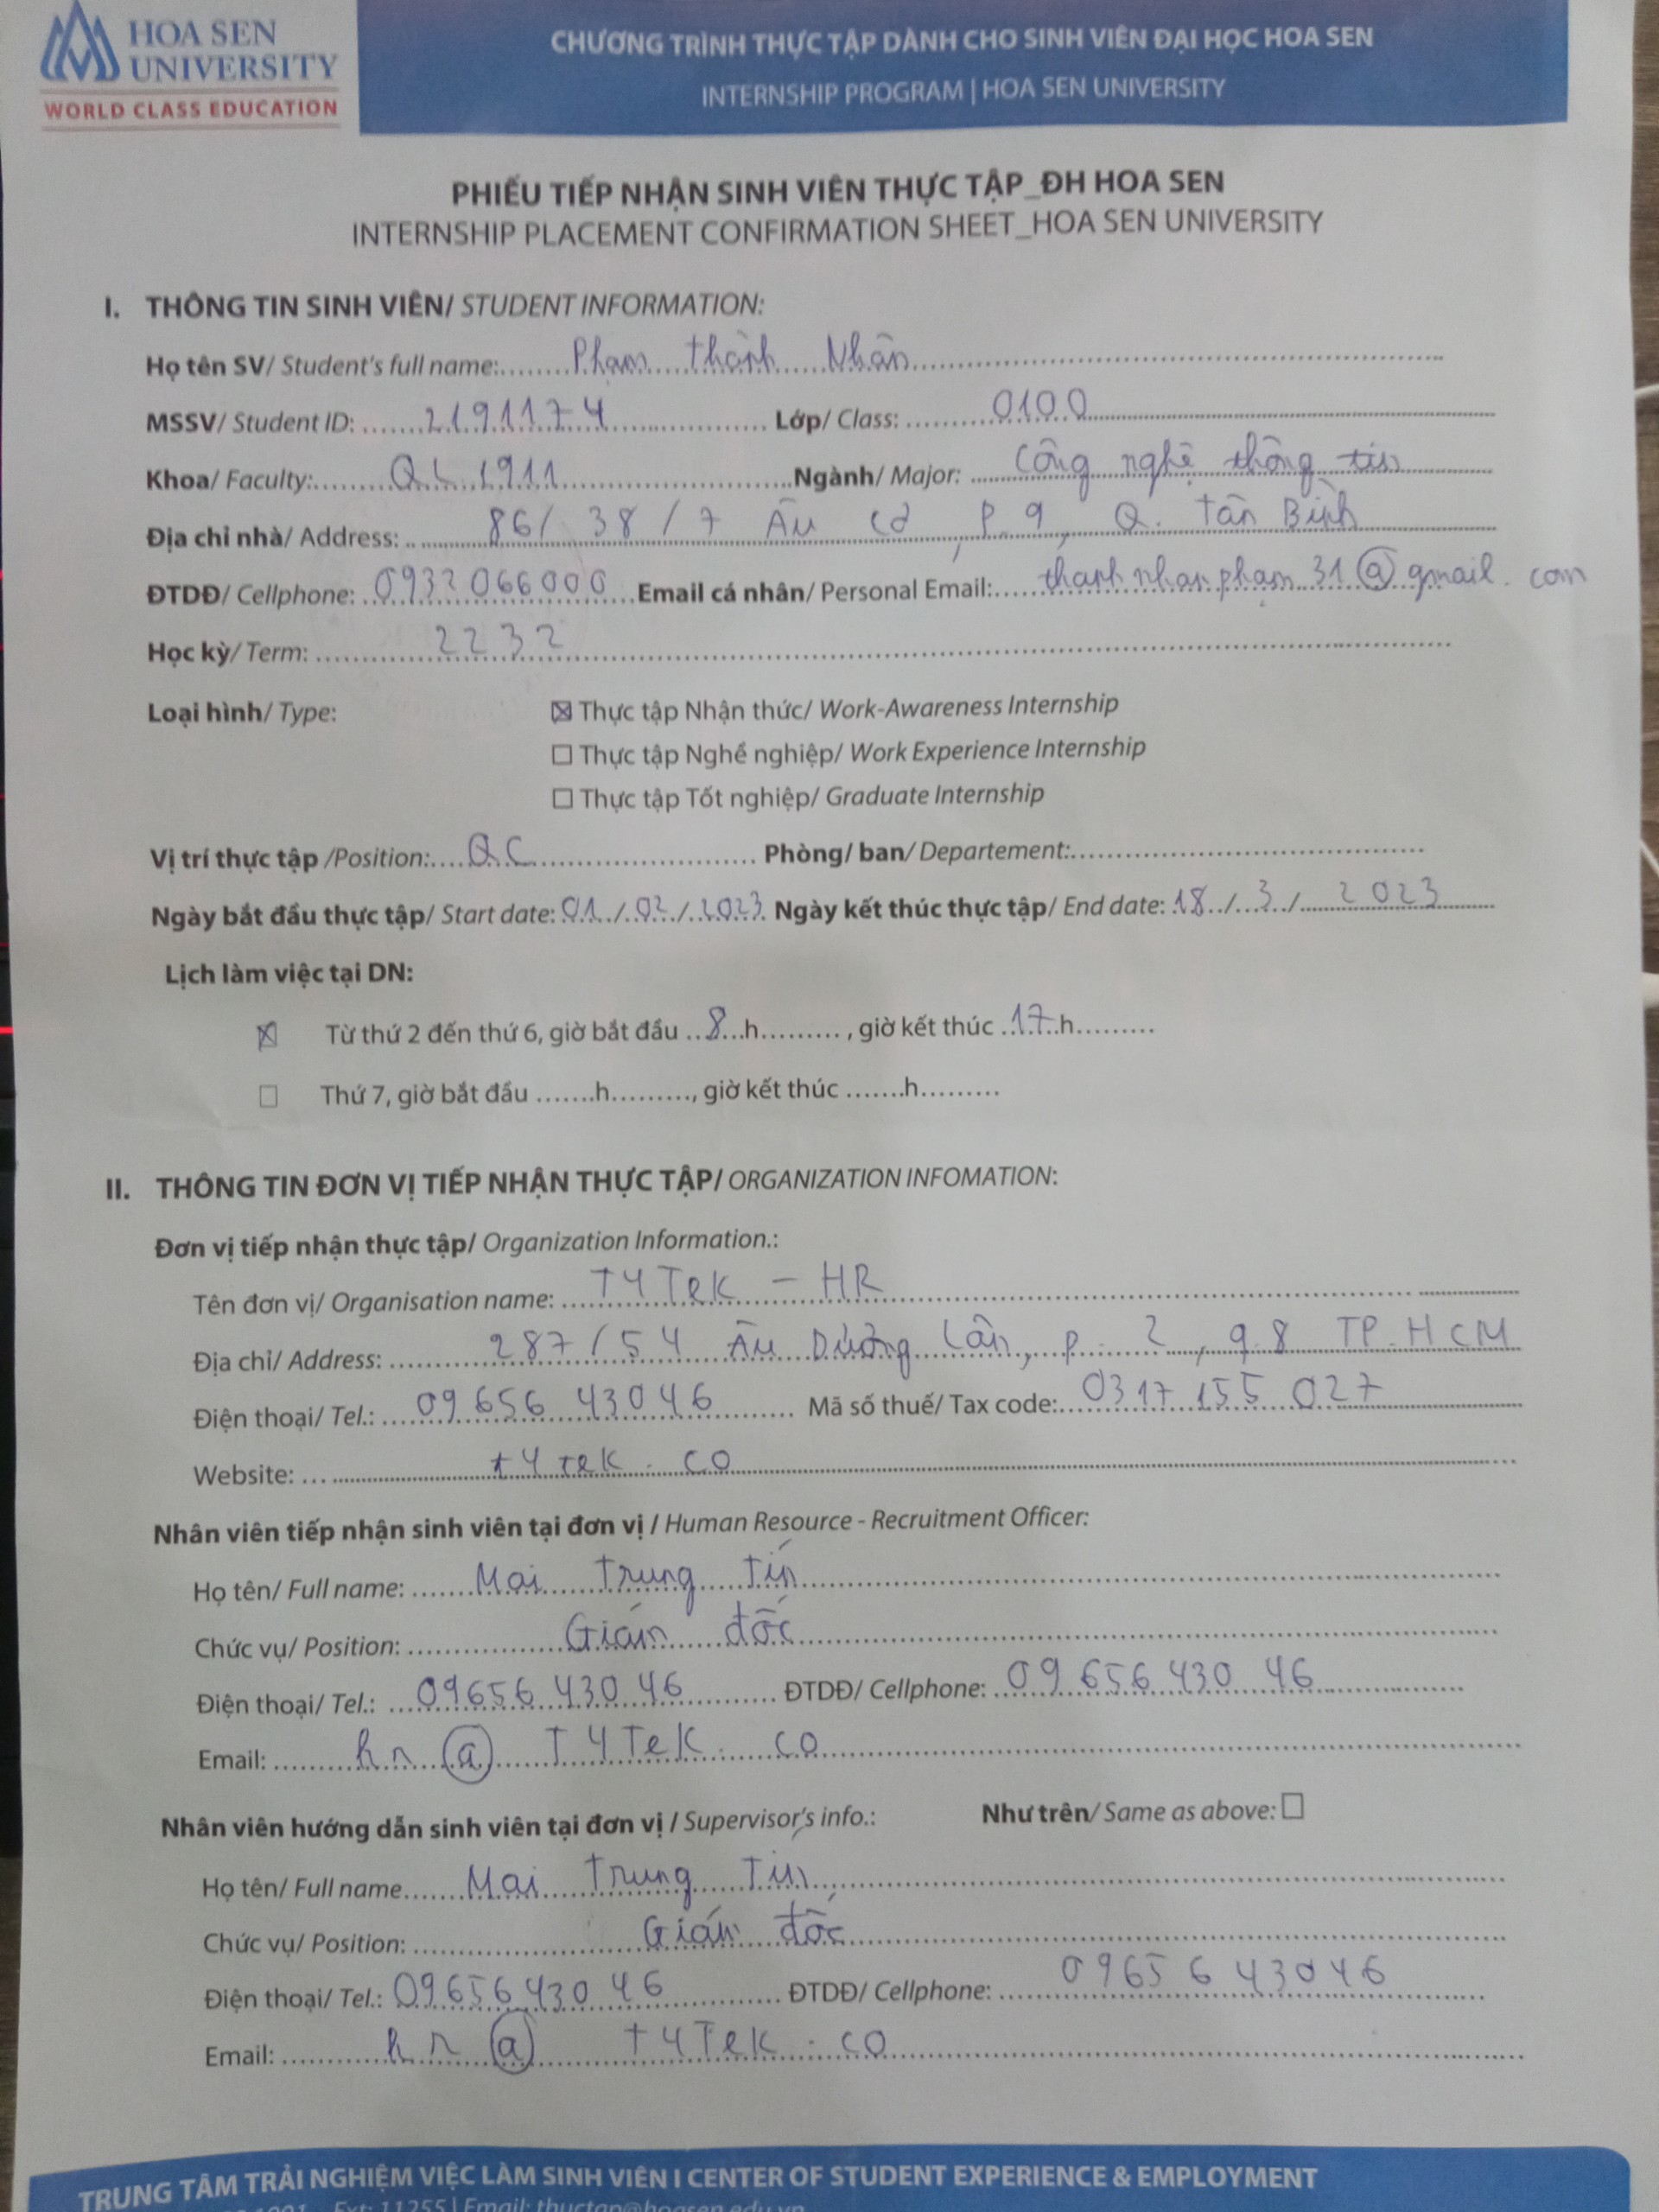 HOA SEN
UNIVERSITY
WORLD CLASS EDUCATION
CHƯƠNG TRÌNH THỰC TẬP DÀNH CHO SINH VIÊN ĐẠI HỌC HOA SEN
INTERNSHIP PROGRAM | HOA SEN UNIVERSITY
PHIẾU TIẾP NHẬN SINH VIÊN THỰC TẬP_ĐH HOA SEN
INTERNSHIP PLACEMENT CONFIRMATION SHEET_HOA SEN UNIVERSITY
I. THÔNG TIN SINH VIÊN/ STUDENT INFORMATION:
Họ tên SV/ Student's full name: Phạm Thành Nhân
MSSV/ Student ID: 2191174 Lớp/ Class: 0100
Khoa/ Faculty: QL 1911 Ngành/ Major: Công nghệ thông tin
Địa chỉ nhà/ Address: 86/ 38 / 7 Âu Cơ, P.9, Q. Tân Bình
ĐTDĐ/ Cellphone: 0932066000 Email cá nhân/ Personal Email: thanhnhanpham31@gmail.com
Học kỳ/ Term: 2232
Loại hình/ Type: ☒ Thực tập Nhận thức/ Work-Awareness Internship
☐ Thực tập Nghề nghiệp/ Work Experience Internship
☐ Thực tập Tốt nghiệp/ Graduate Internship
Vị trí thực tập /Position: QC Phòng/ ban/ Departement:
Ngày bắt đầu thực tập/ Start date: 01/02/2023 Ngày kết thúc thực tập/ End date: 18/3/2023
Lịch làm việc tại DN:
☒ Từ thứ 2 đến thứ 6, giờ bắt đầu 8h........., giờ kết thúc 17h.........
☐ Thứ 7, giờ bắt đầu .......h........., giờ kết thúc .......h.........
II. THÔNG TIN ĐƠN VỊ TIẾP NHẬN THỰC TẬP/ ORGANIZATION INFOMATION:
Đơn vị tiếp nhận thực tập/ Organization Information.:
Tên đơn vị/ Organisation name: T4Tek - HR
Địa chỉ/ Address: 287/54 Âu Dương Lân, p. 2, q.8 TP.HCM
Điện thoại/ Tel.: 0965643046 Mã số thuế/ Tax code: 0317155027
Website: t4tek.co
Nhân viên tiếp nhận sinh viên tại đơn vị / Human Resource - Recruitment Officer:
Họ tên/ Full name: Mai Trung Tín
Chức vụ/ Position: Giám đốc
Điện thoại/ Tel.: 0965643046 ĐTDĐ/ Cellphone: 0965643046
Email: hr@T4Tek.co
Nhân viên hướng dẫn sinh viên tại đơn vị / Supervisor's info.: Như trên/ Same as above: ☐
Họ tên/ Full name Mai Trung Tín
Chức vụ/ Position: Giám đốc
Điện thoại/ Tel.: 0965643046 ĐTDĐ/ Cellphone: 0965643046
Email: hr@t4Tek.co
TRUNG TÂM TRẢI NGHIỆM VIỆC LÀM SINH VIÊN I CENTER OF STUDENT EXPERIENCE & EMPLOYMENT
Ext: 11255 | Email: thuctap@hoasen.edu.vn